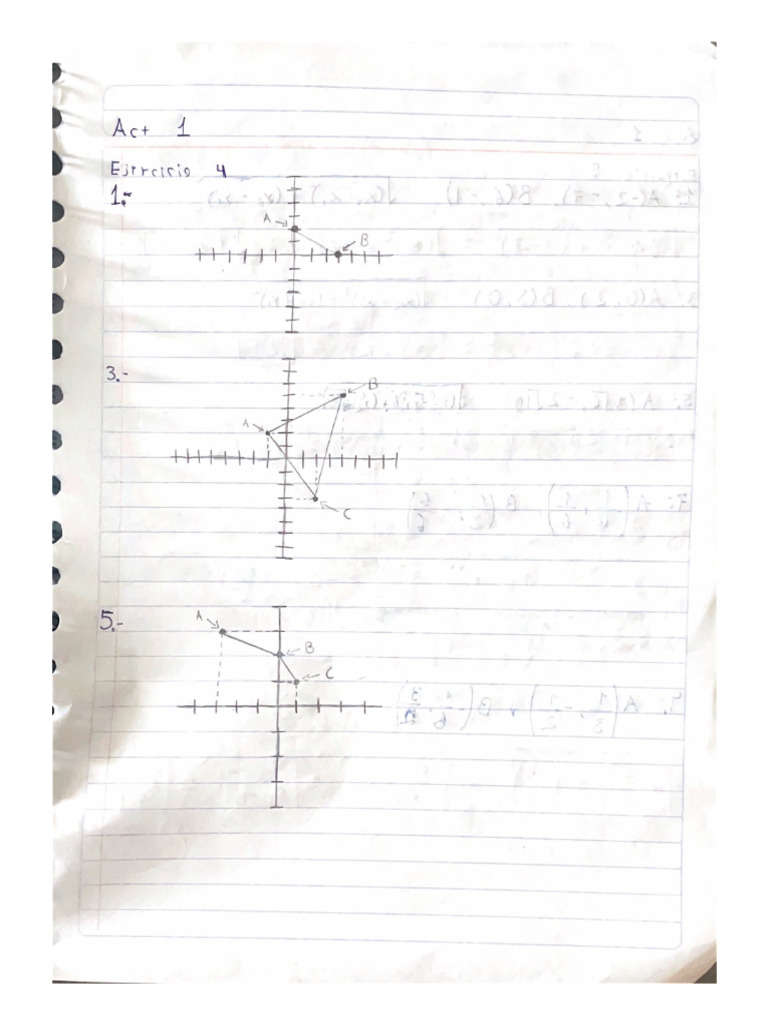 Act 1
Ejercicio 4
1.-
A
B
3.-
B
A
C
5.-
A
B
C